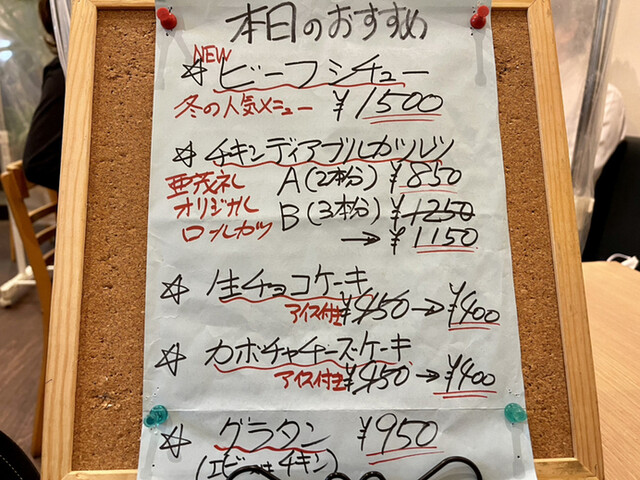 本日のおすすめ
NEW
☆ ビーフシチュー
冬の人気メニュー ¥1500
☆ チキンディアブルカツレツ
亜茂礼 A(2本分) ¥850
オリジナル B(3本分) ¥1250
ロールカツ → ¥1150
☆ 生チョコケーキ
アイス付き ¥450 → ¥400
☆ カボチャチーズケーキ
アイス付き ¥450 → ¥400
☆ グラタン ¥950
チキン)